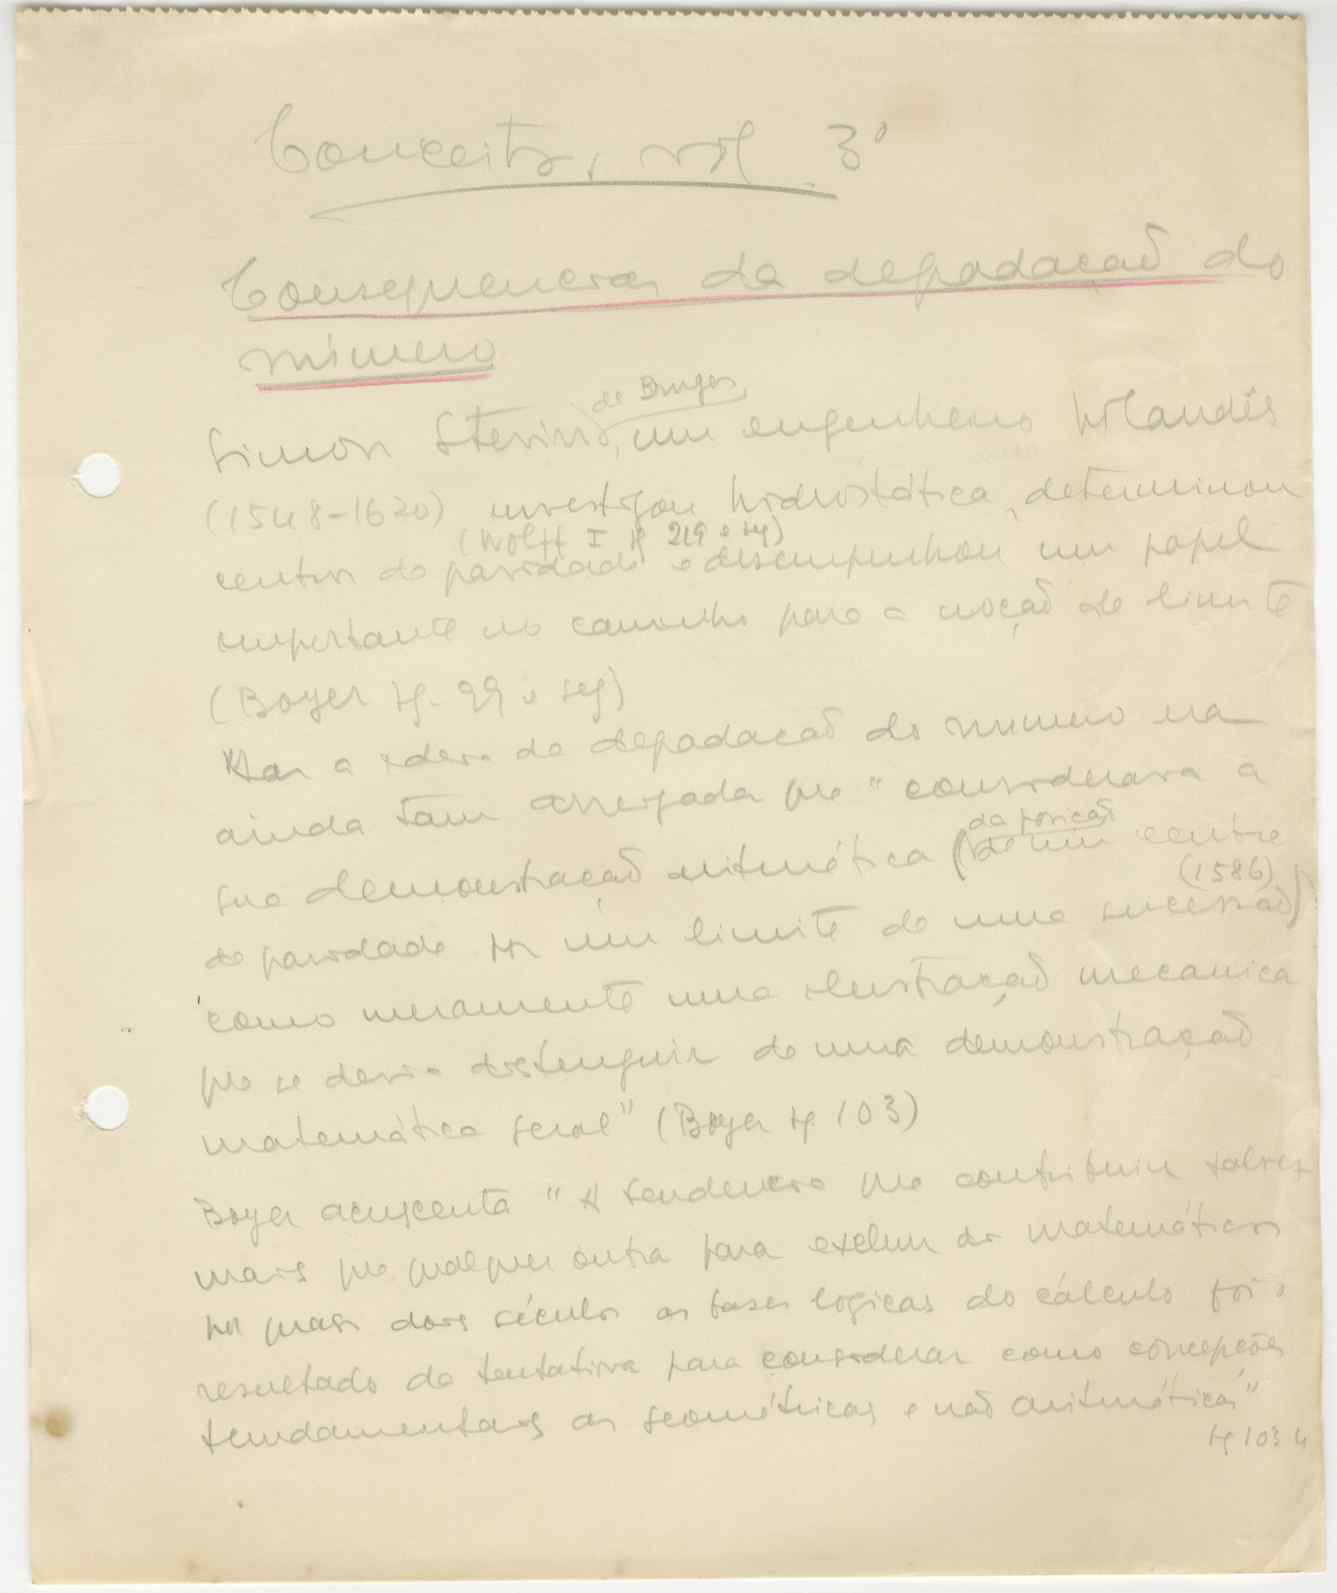 Conceitos, vol. 3º
Consequencias da degradação do
número
de Bruges
Simon Stevin, um engenheiro holandês
(1548-1620) investigou hidrostática, determinou
(Wolff I pg 219 e seg)
centros de gravidade e desempenhou um papel
importante no caminho para a noção de limite
(Boyer pg. 99 e seg)
Mas a ideia da degradação do número era
ainda tam arreigada que "considerava a
sua demonstração aritmética (da posição
de um centro
(1586)
de gravidade por um limite de uma sucessão)
como meramente uma ilustração mecanica
que se devia distinguir de uma demonstração
matemática geral" (Boyer pg. 103)
Boyer acrescenta "A tendencia que contribuiu talvez
mais que qualquer outra para excluir da matemática
por quasi dois séculos as bases logicas do cálculo foi o
resultado da tentativa para considerar como concepções
fundamentais as geométricas e não aritméticas"
pg 103